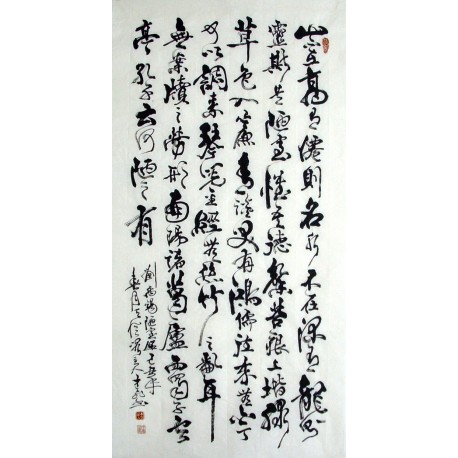 山不在高有僊則名水不在深有龍則
靈斯是陋室惟吾德馨苔痕上堦綠
草色入簾青談笑有鴻儒往來無白丁
可以調素琴閱金經無絲竹之亂耳
無案牘之勞形南陽諸葛廬西蜀子雲
亭孔子云何陋之有
劉禹錫陋室銘己丑年
春月